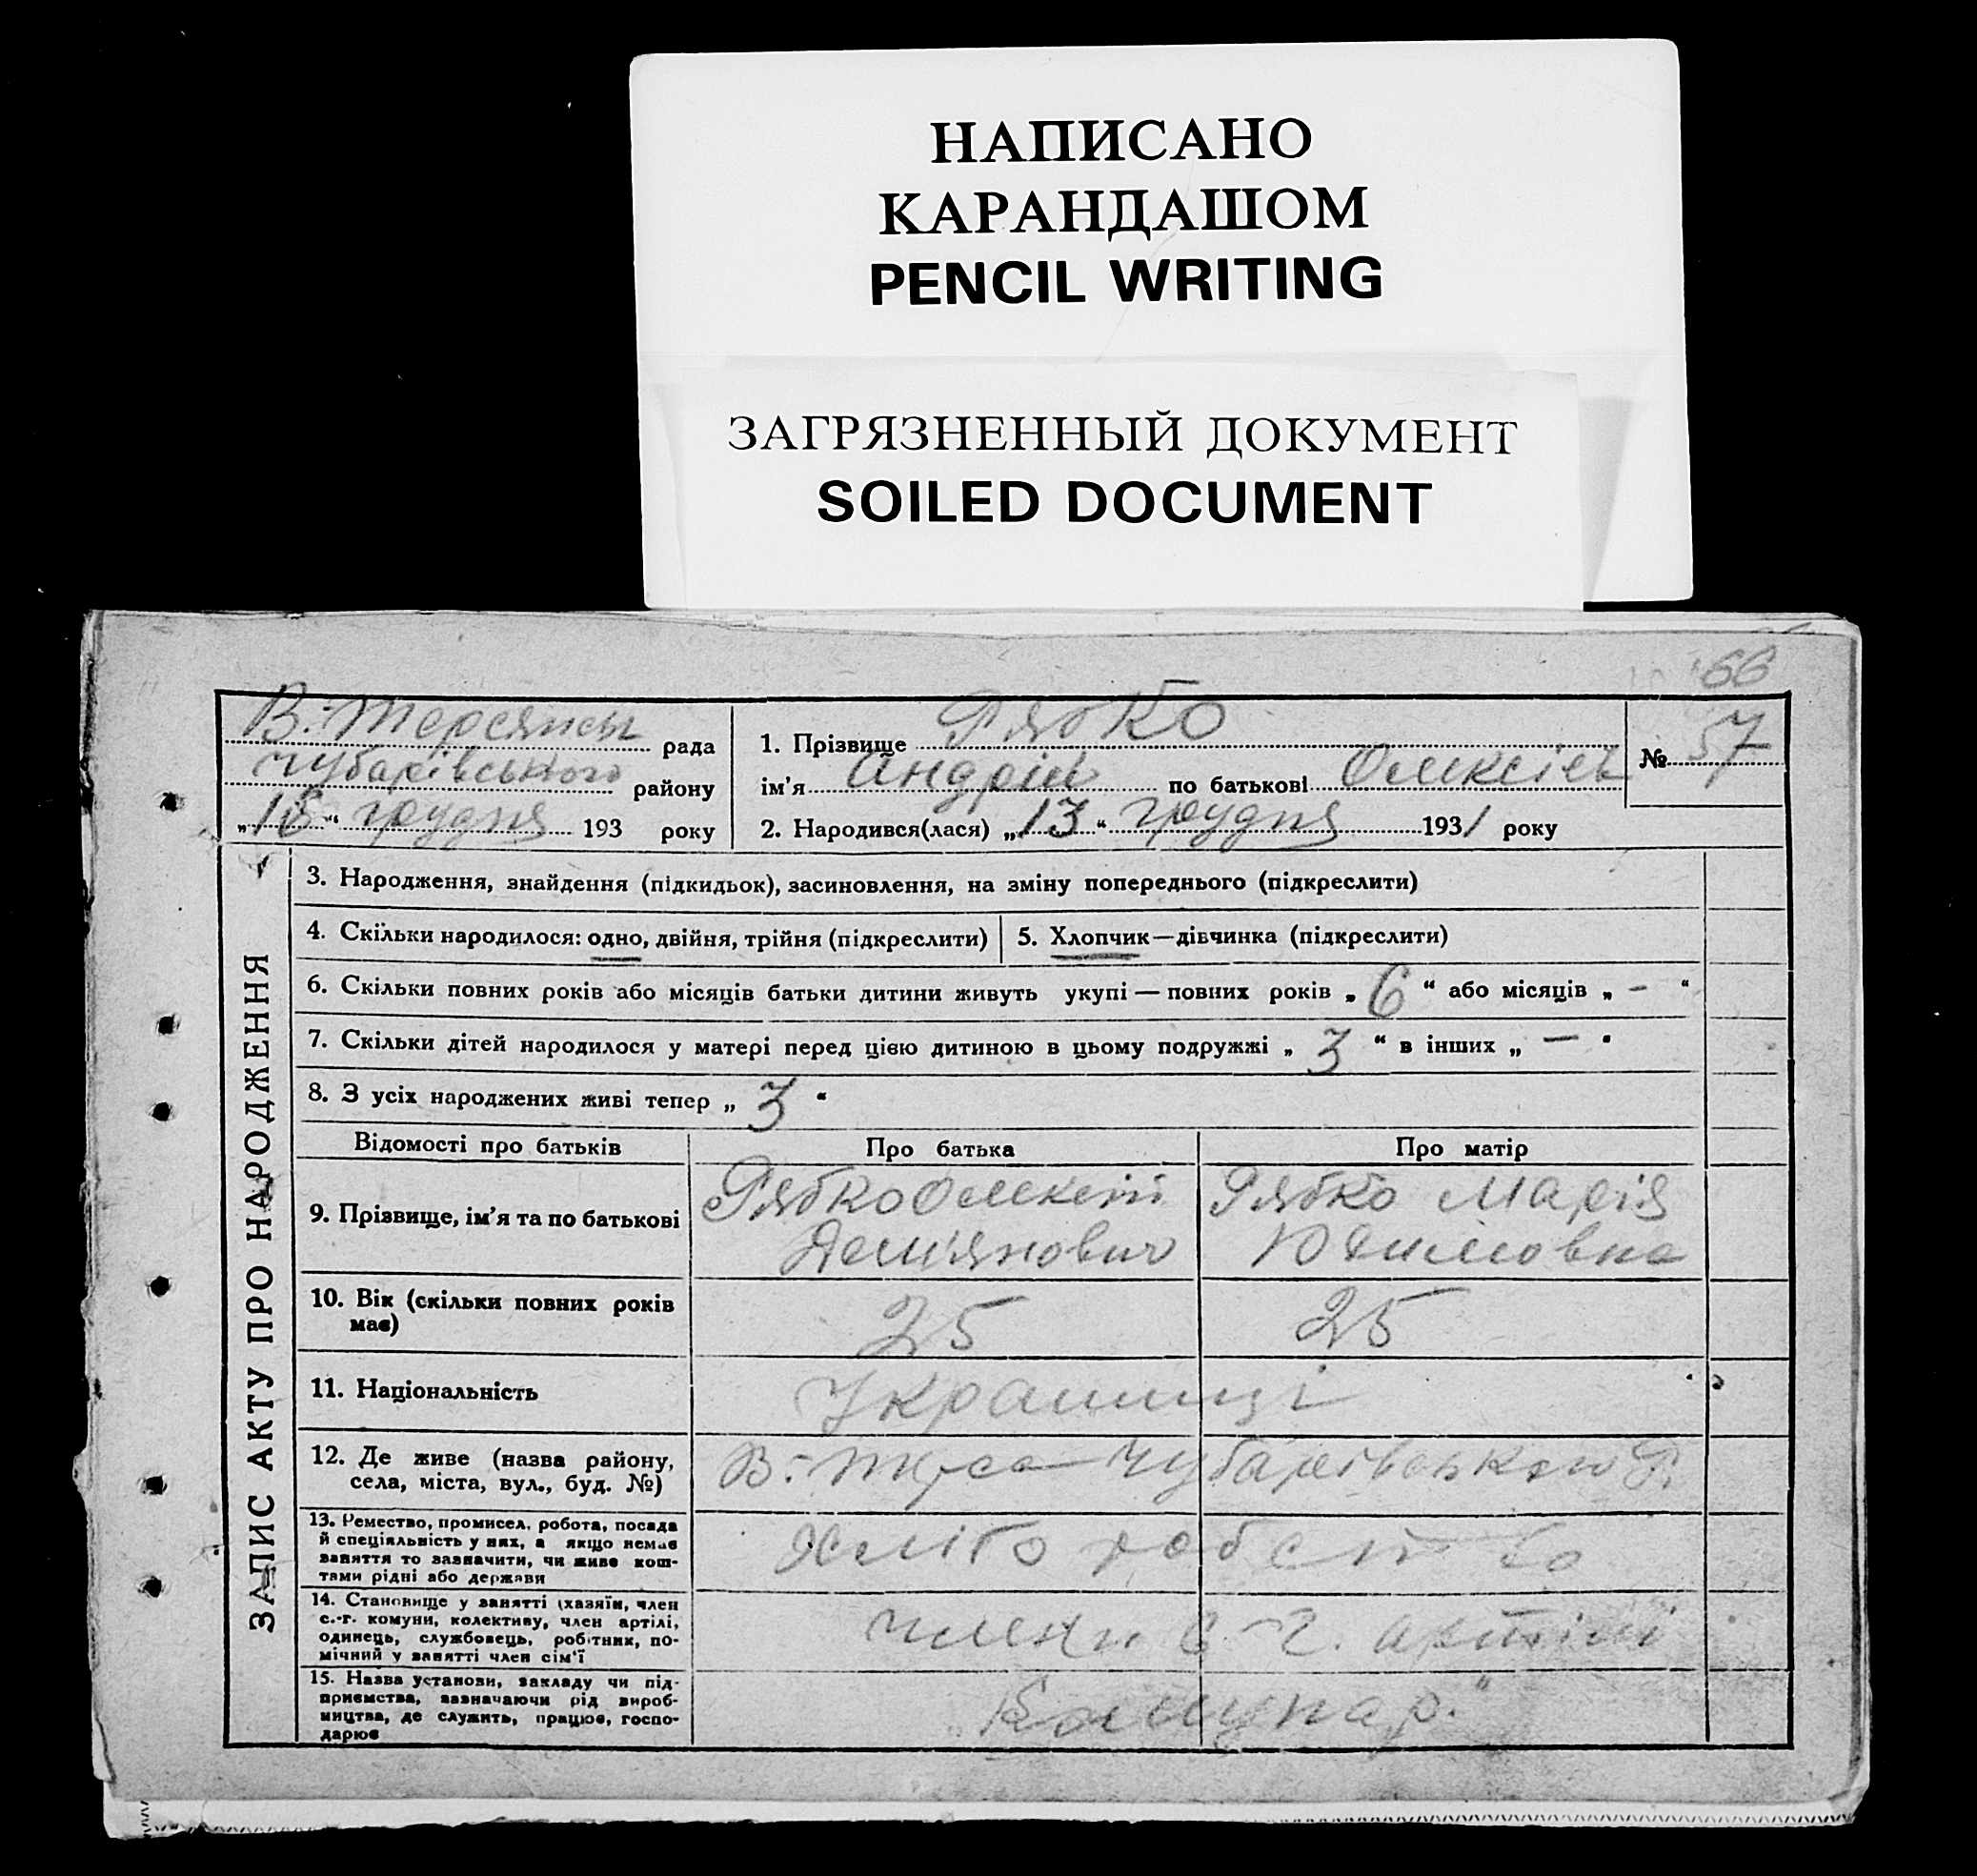 НАПИСАНО
КАРАНДАШОМ
PENCIL WRITING
ЗАГРЯЗНЕННЫЙ ДОКУМЕНТ
SOILED DOCUMENT
66
В.-Терсянсь рада
Чубарівського району
„ “ грудня 193 року
1. Прізвище Рябко
ім'я Андрій по батькові Олексієв
2. Народився(лася) „13“ грудня 1931 року
№ 57
ЗАПИС АКТУ ПРО НАРОДЖЕННЯ
3. Народження, знайдення (підкидьок), засиновлення, на зміну попереднього (підкреслити)
4. Скільки народилося: одно, двійня, трійня (підкреслити)
5. Хлопчик—дівчинка (підкреслити)
6. Скільки повних років або місяців батьки дитини живуть укупі — повних років „6“ або місяців „-“
7. Скільки дітей народилося у матері перед цією дитиною в цьому подружжі „3“ в інших „—“
8. З усіх народжених живі тепер „3“
Відомості про батьків Про батька Про матір
9. Прізвище, ім'я та по батькові
Рябко Олексій
Дем'янович
Рябко Марія
Юхимовна
10. Вік (скільки повних років
має)
25 25
11. Національність Українці
12. Де живе (назва району,
села, міста, вул., буд. №)
В.-Терса Чубарівського Р.
13. Ремество, промисел, робота, посада
й спеціяльність у них, а якщо немає
заняття то зазначити, чи живе кош-
тами рідні або держави
Хліборобство
14. Становище у занятті (хазяїн, член
с.-г. комуни, колективу, член артілі,
одинець, службовець, робітник, по-
мічний у занятті член сім'ї
члени с-г. артілі
15. Назва установи, закладу чи під-
приємства, зазначаючи рід вироб-
ництва, де служить, працює, госпо-
дарює
„Комунар."